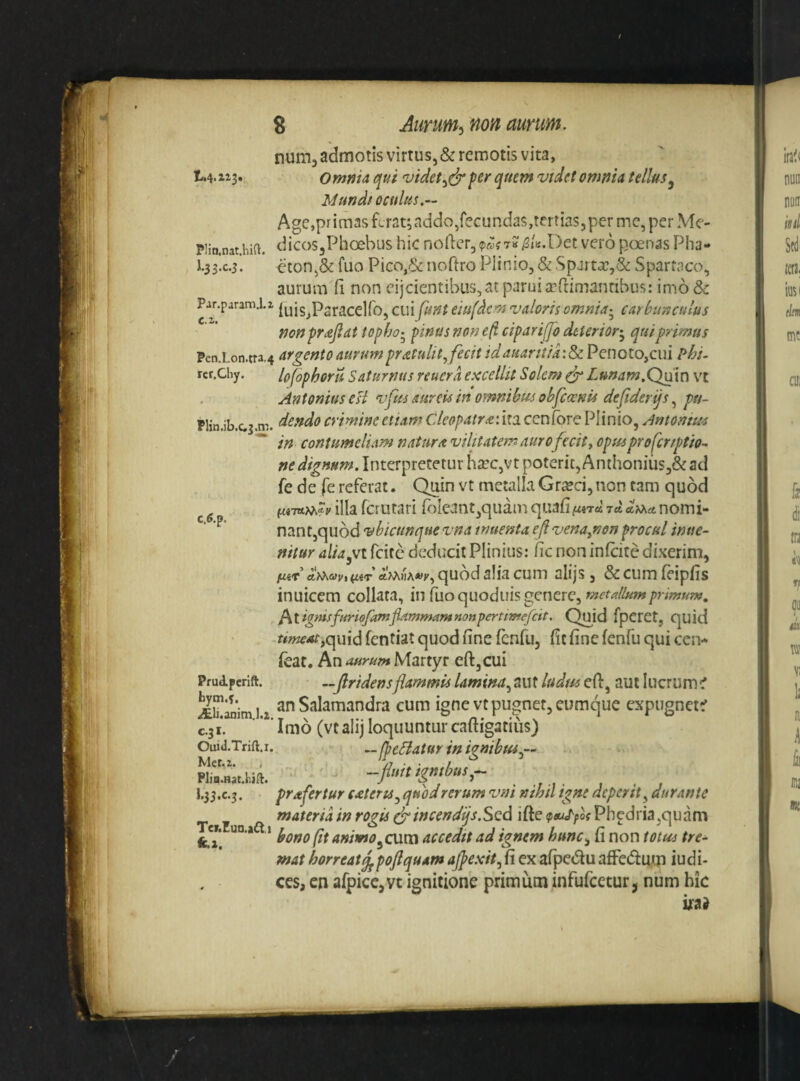 8 Aurum, non aurum.
num, admotis virtus, & remotis vita,
L.4.223. Omnia qui videt, & per quem videt omnia tellus,
Mundi oculus.--
Age, primas ferat; addo, fecundas, tertias, per me, per Me-
Plin.nat.hist. dicos, Phœbus hic noster, φῶς τȣ βίȣ. Det verò pœnas Pha-
l.33.c.3. ëton, & suo Pico, & nostro Plinio, & Spartæ, & Spartaco,
aurum si non eijcientibus, at parui æstimantibus: imò &
Par.param.l.2 suis, Paracelso, cui sunt eiusdem valoris omnia; carbunculus
c.2.
non præstat topho; pinus non est ciparisso deterior; qui primus
Pen.Lon.tra.4 argento aurum prætulit, fecit id auaritiâ: & Penoto, cui Phi-
rer.Chy. losophorũ Saturnus reuerâ excellit Solem & Lunam. Quin vt
Antonius est vsus aureis in omnibus obscœnis desiderijs, pu-
Plin.ib.c.3.m. dendo crimine etiam Cleopatræ: ita censore Plinio, Antonius
in contumeliam naturæ vilitatem auro fecit, opus proscriptio-
ne dignum. Interpretetur hæc, vt poterit, Anthonius, & ad
se de se referat. Quin vt metalla Græci, non tam quòd
c.6.p. μεταλλᾶν illa scrutari soleant, quàm quasi μετὰ τὰ ἄλλα nomi-
nant, quòd vbicunque vna inuenta est vena, non procul inue-
nitur alia, vt scitè deducit Plinius: sic non inscitè dixerim,
μετ' ἄλλων, μετ' ἀλλήλων, quòd alia cum alijs, & cum seipsis
inuicem collata, in suo quoduis genere, metallum primum.
At ignis furiosam flammam non pertimescit. Quid speret, quid
timeat, quid sentiat quod sine sensu, sit sine sensu qui cen-
seat. An aurum Martyr est, cui
Prud.perist. --stridens flammis lamina, aut ludus est, aut lucrum?
hym.5.
Æli.anim.l.2. an Salamandra cum igne vt pugnet, eumque expugnet?
c.31. Imò (vt alij loquuntur castigatiùs)
Ouid.Trist.1. --spectatur in ignibus,--
Met.2.
Plin.nat.hist. --fluit ignibus,--
l.33.c.3. præfertur cæteris, quòd rerum vni nihil igne deperit, durante
materiâ in rogis & incendijs. Sed iste φαιδρὸς Phędria, quàm
Ter.Eun.act.1 bono sit animo, cum accedit ad ignem hunc, si non totus tre-
sc.2.
mat horreatq; postquam aspexit, si ex aspectu affectum iudi-
ces, en aspice, vt ignitione primùm infuscetur, num hîc